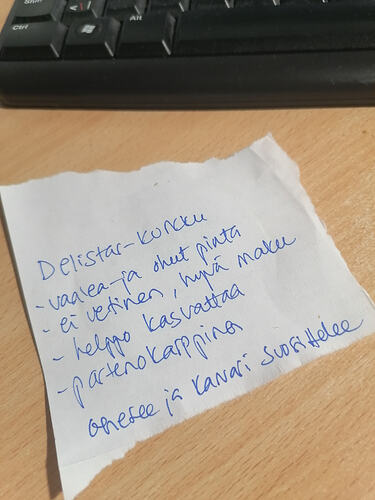 Ctrl
Alt
Delistar-kurkku
- vaalea-ja ohut pinta
- ei vetinen, hyvä maku
- helppo kasvattaa
- partenokarppinen
ja Kanari suosittelee